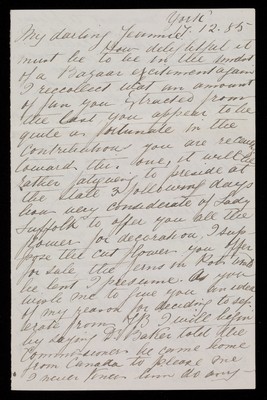 York
17.12.85
My darling Jemmie
How delightful it
must be to be in the midst
of a Bazaar excitement again
I recollect what an amount
of fun you extracted from
the last you appear to be
quite as fortunate in the
contributions you are receiving
towards this one, it will be
rather fatiguing to preside at
the stall 3 following days
how very considerate of Lady
Suffolk to offer you all the
flowers for decoration, I sup-
pose the cut flowers you offer
for sale the ferns in Pots will
be lent I presume. As you
invite me to give you an idea
of my reason for deciding to sep-
erate from I will begin
by saying Dr Baker told the
Commissioners he came home
from Canada to please me
I never knew him do any